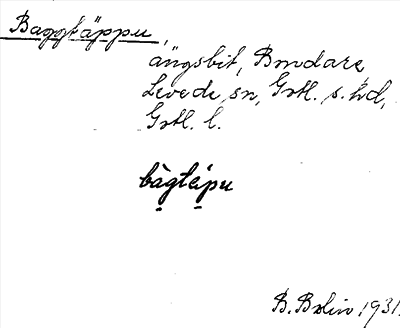 Baggtäppu,
ängsbit, Bondarve
Levede sn, Gotl. s. hd,
Gotl. l.
bàgtäpu
B. Bolin 1931.